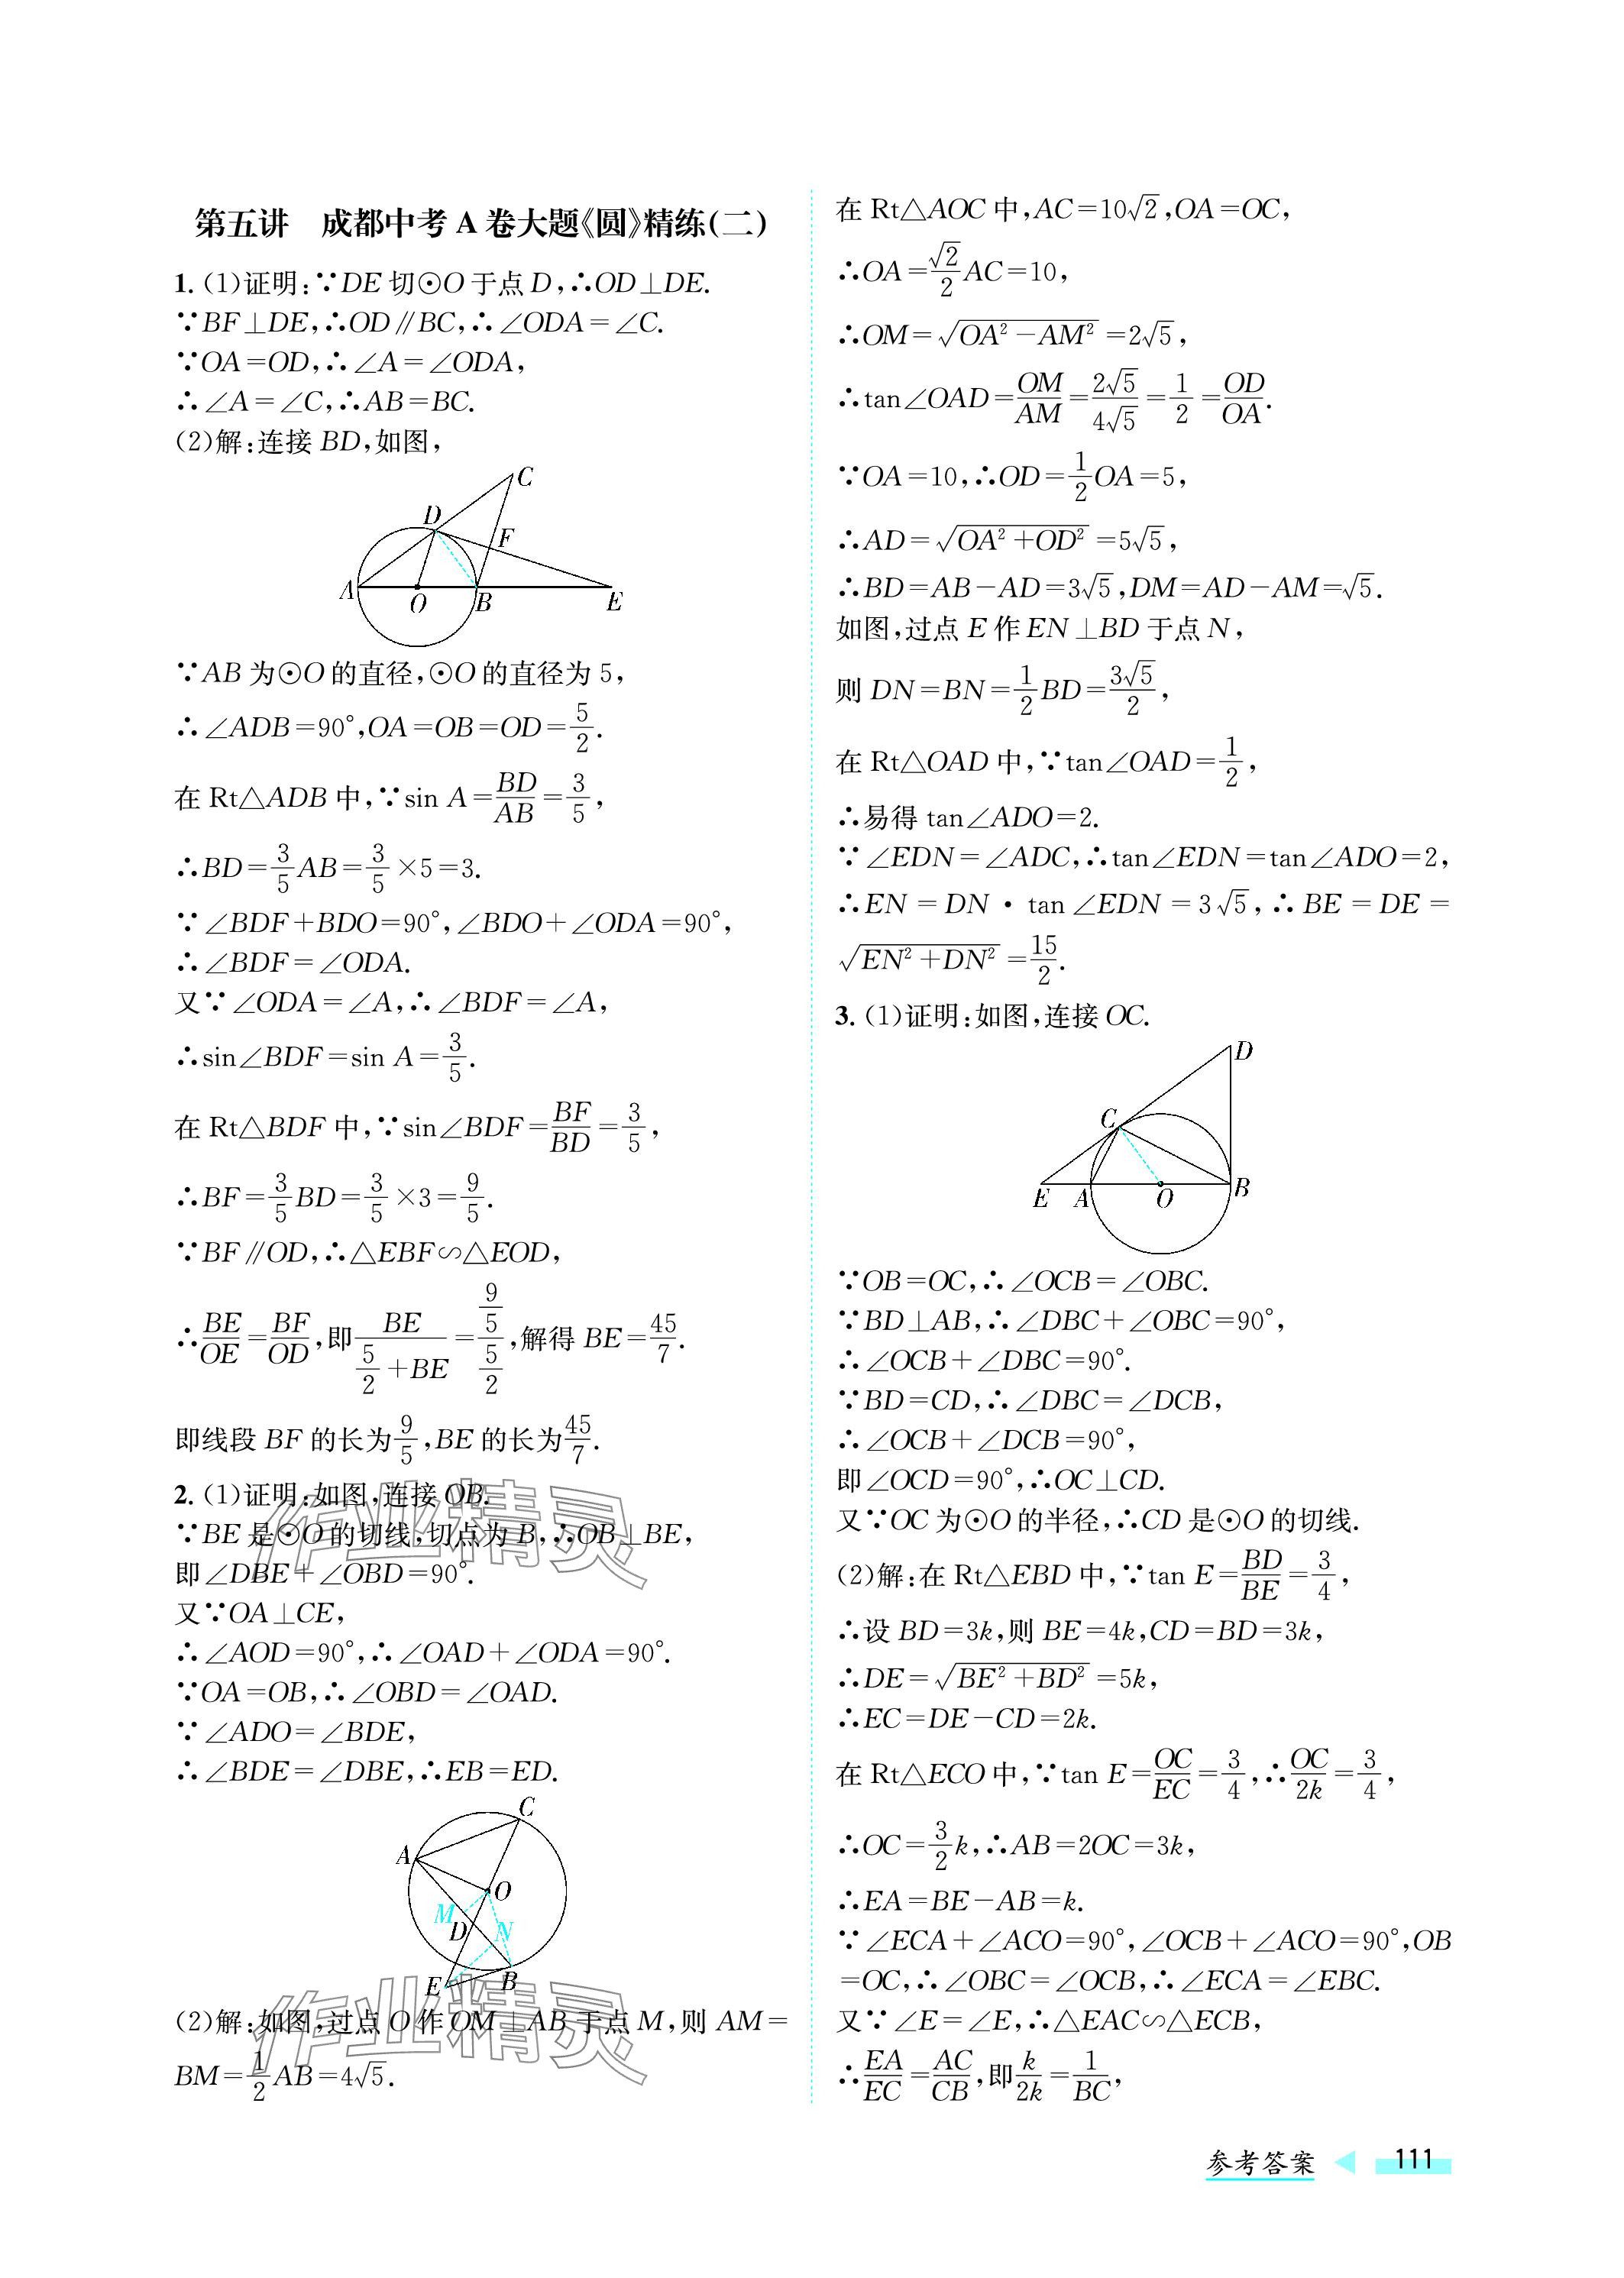 第五讲　成都中考 A 卷大题《圆》精练(二)
1. (1)证明:∵DE 切⊙O 于点 D,∴OD⊥DE.
∵BF⊥DE,∴OD∥BC,∴∠ODA=∠C.
∵OA=OD,∴∠A=∠ODA,
∴∠A=∠C,∴AB=BC.
(2)解:连接 BD,如图,
C
D
F
A
O
B
E
∵AB 为⊙O 的直径,⊙O 的直径为 5,
∴∠ADB=90°,OA=OB=OD=5/2.
在 Rt△ADB 中,∵sin A=BD/AB=3/5,
∴BD=3/5AB=3/5×5=3.
∵∠BDF+BDO=90°,∠BDO+∠ODA=90°,
∴∠BDF=∠ODA.
又∵∠ODA=∠A,∴∠BDF=∠A,
∴sin∠BDF=sin A=3/5.
在 Rt△BDF 中,∵sin∠BDF=BF/BD=3/5,
∴BF=3/5BD=3/5×3=9/5.
∵BF∥OD,∴△EBF∽△EOD,
∴BE/OE=BF/OD,即BE/(5/2+BE)=(9/5)/(5/2),解得 BE=45/7.
即线段 BF 的长为9/5,BE 的长为45/7.
2. (1)证明:如图,连接 OB.
∵BE 是⊙O 的切线,切点为 B,∴OB⊥BE,
即∠DBE+∠OBD=90°.
又∵OA⊥CE,
∴∠AOD=90°,∴∠OAD+∠ODA=90°.
∵OA=OB,∴∠OBD=∠OAD.
∵∠ADO=∠BDE,
∴∠BDE=∠DBE,∴EB=ED.
C
A
O
M
D
N
E
B
(2)解:如图,过点 O 作 OM⊥AB 于点 M,则 AM=
BM=1/2AB=4√5.
在 Rt△AOC 中,AC=10√2,OA=OC,
∴OA=√2/2AC=10,
∴OM=√(OA²-AM²)=2√5,
∴tan∠OAD=OM/AM=2√5/4√5=1/2=OD/OA.
∵OA=10,∴OD=1/2OA=5,
∴AD=√(OA²+OD²)=5√5,
∴BD=AB-AD=3√5,DM=AD-AM=√5.
如图,过点 E 作 EN⊥BD 于点 N,
则 DN=BN=1/2BD=3√5/2,
在 Rt△OAD 中,∵tan∠OAD=1/2,
∴易得 tan∠ADO=2.
∵∠EDN=∠ADC,∴tan∠EDN=tan∠ADO=2,
∴EN=DN·tan∠EDN=3√5,∴BE=DE=
√(EN²+DN²)=15/2.
3. (1)证明:如图,连接 OC.
D
C
E
A
O
B
∵OB=OC,∴∠OCB=∠OBC.
∵BD⊥AB,∴∠DBC+∠OBC=90°,
∴∠OCB+∠DBC=90°.
∵BD=CD,∴∠DBC=∠DCB,
∴∠OCB+∠DCB=90°,
即∠OCD=90°,∴OC⊥CD.
又∵OC 为⊙O 的半径,∴CD 是⊙O 的切线.
(2)解:在 Rt△EBD 中,∵tan E=BD/BE=3/4,
∴设 BD=3k,则 BE=4k,CD=BD=3k,
∴DE=√(BE²+BD²)=5k,
∴EC=DE-CD=2k.
在 Rt△ECO 中,∵tan E=OC/EC=3/4,∴OC/2k=3/4,
∴OC=3/2k,∴AB=2OC=3k,
∴EA=BE-AB=k.
∵∠ECA+∠ACO=90°,∠OCB+∠ACO=90°,OB
=OC,∴∠OBC=∠OCB,∴∠ECA=∠EBC.
又∵∠E=∠E,∴△EAC∽△ECB,
∴EA/EC=AC/CB,即k/2k=1/BC,
作业精灵
作业精灵
参考答案 ◀ 111